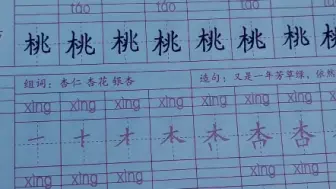 táo táo táo táo
桃 桃 桃 桃 桃 桃 桃 桃
组词：杏仁 杏花 银杏 造句：又是一年芳草绿，依然
xìng xìng xìng xìng xìng xìng xìng
一 十 才 木 杏 杏
xìng xìng xìng